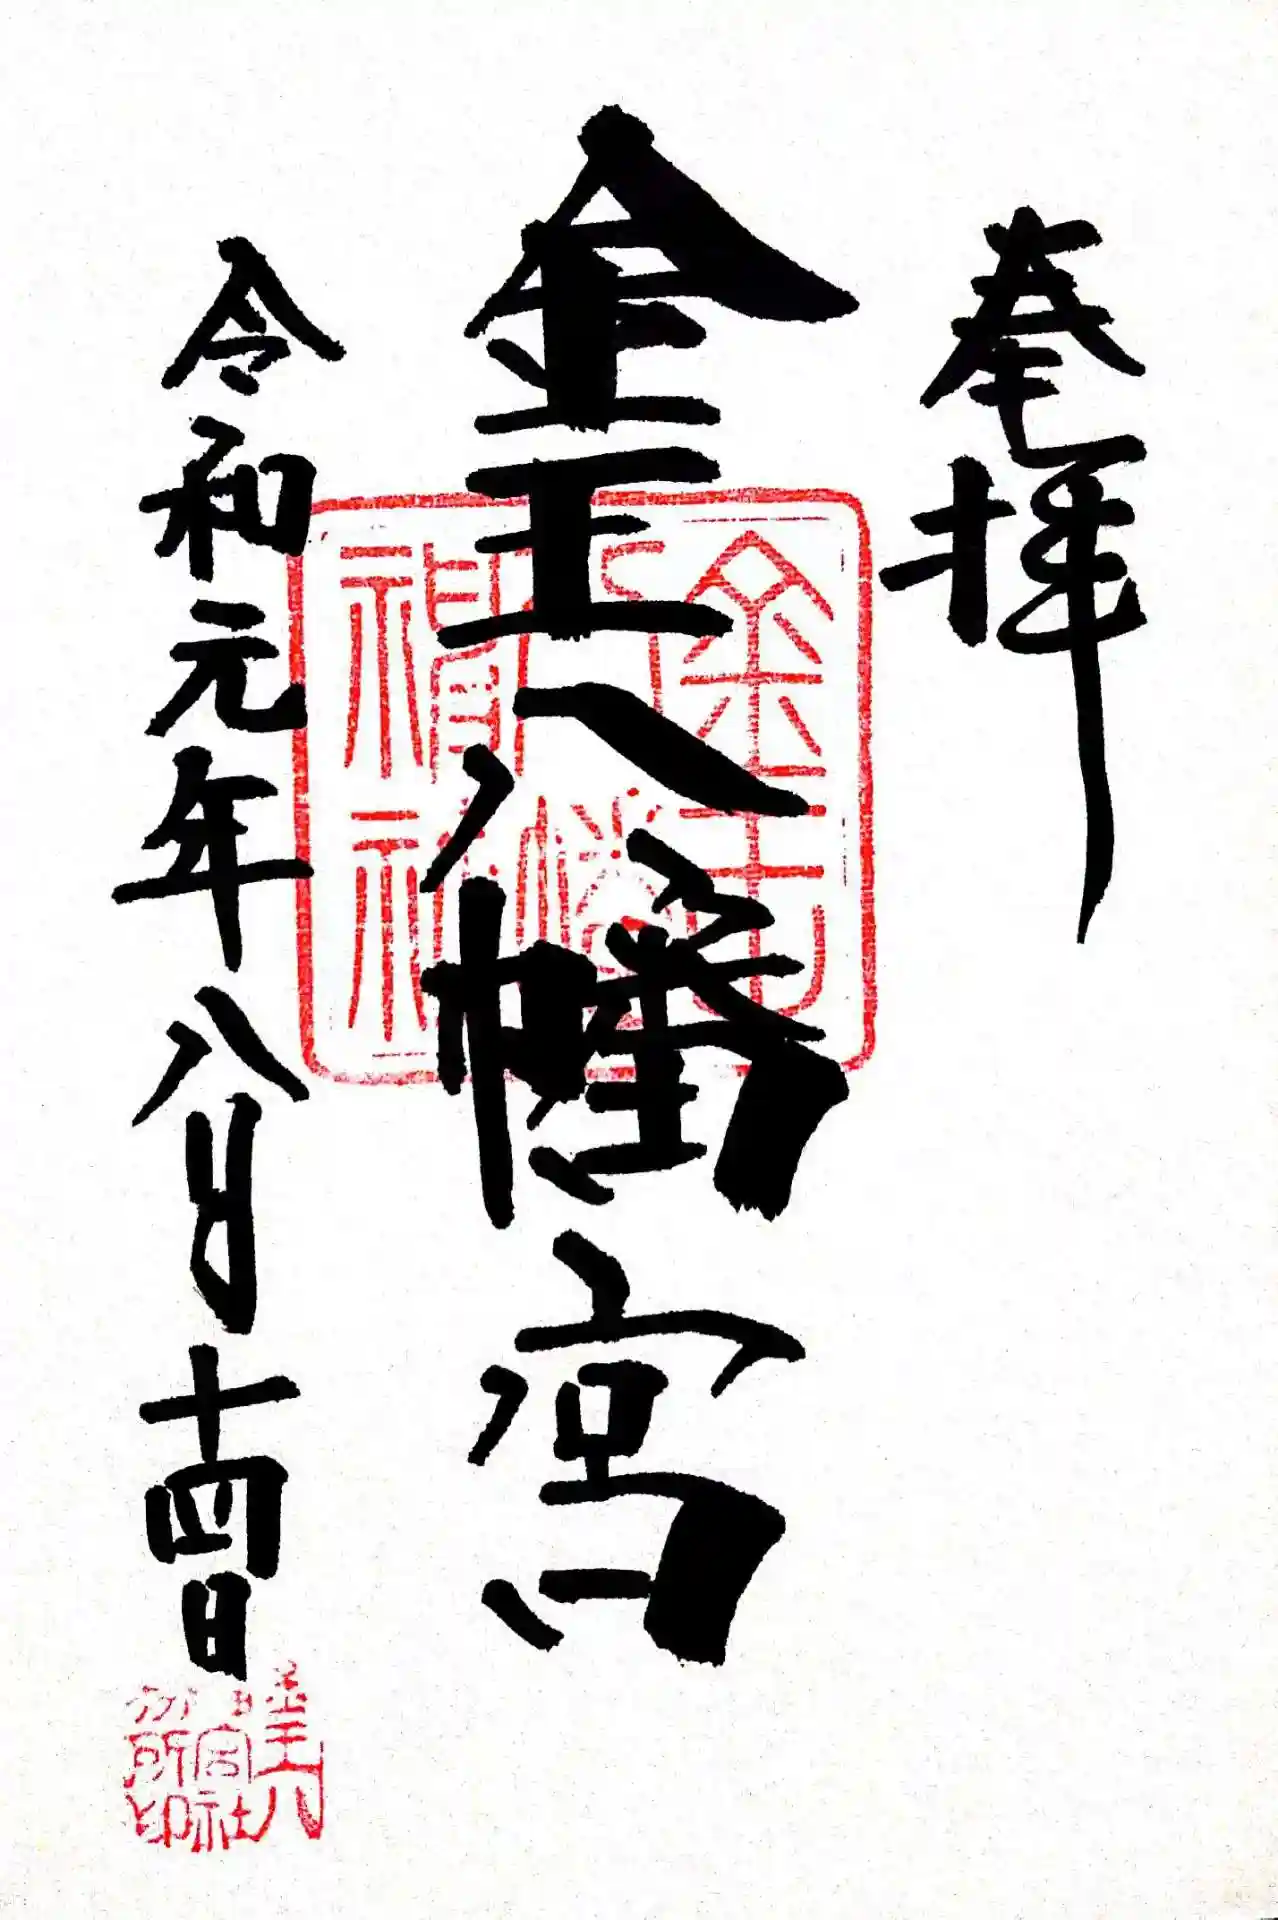 奉拝
金王八幡宮
金王
八幡
神社
令和元年八月十四日
金王八
幡宮社
務所印